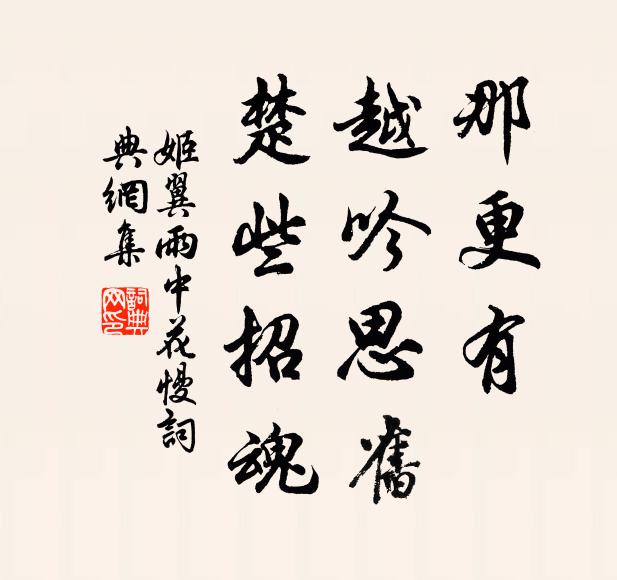 那更有
越吟思舊
楚些招魂
姬翼雨中花慢詞
典網集
詞典
网印